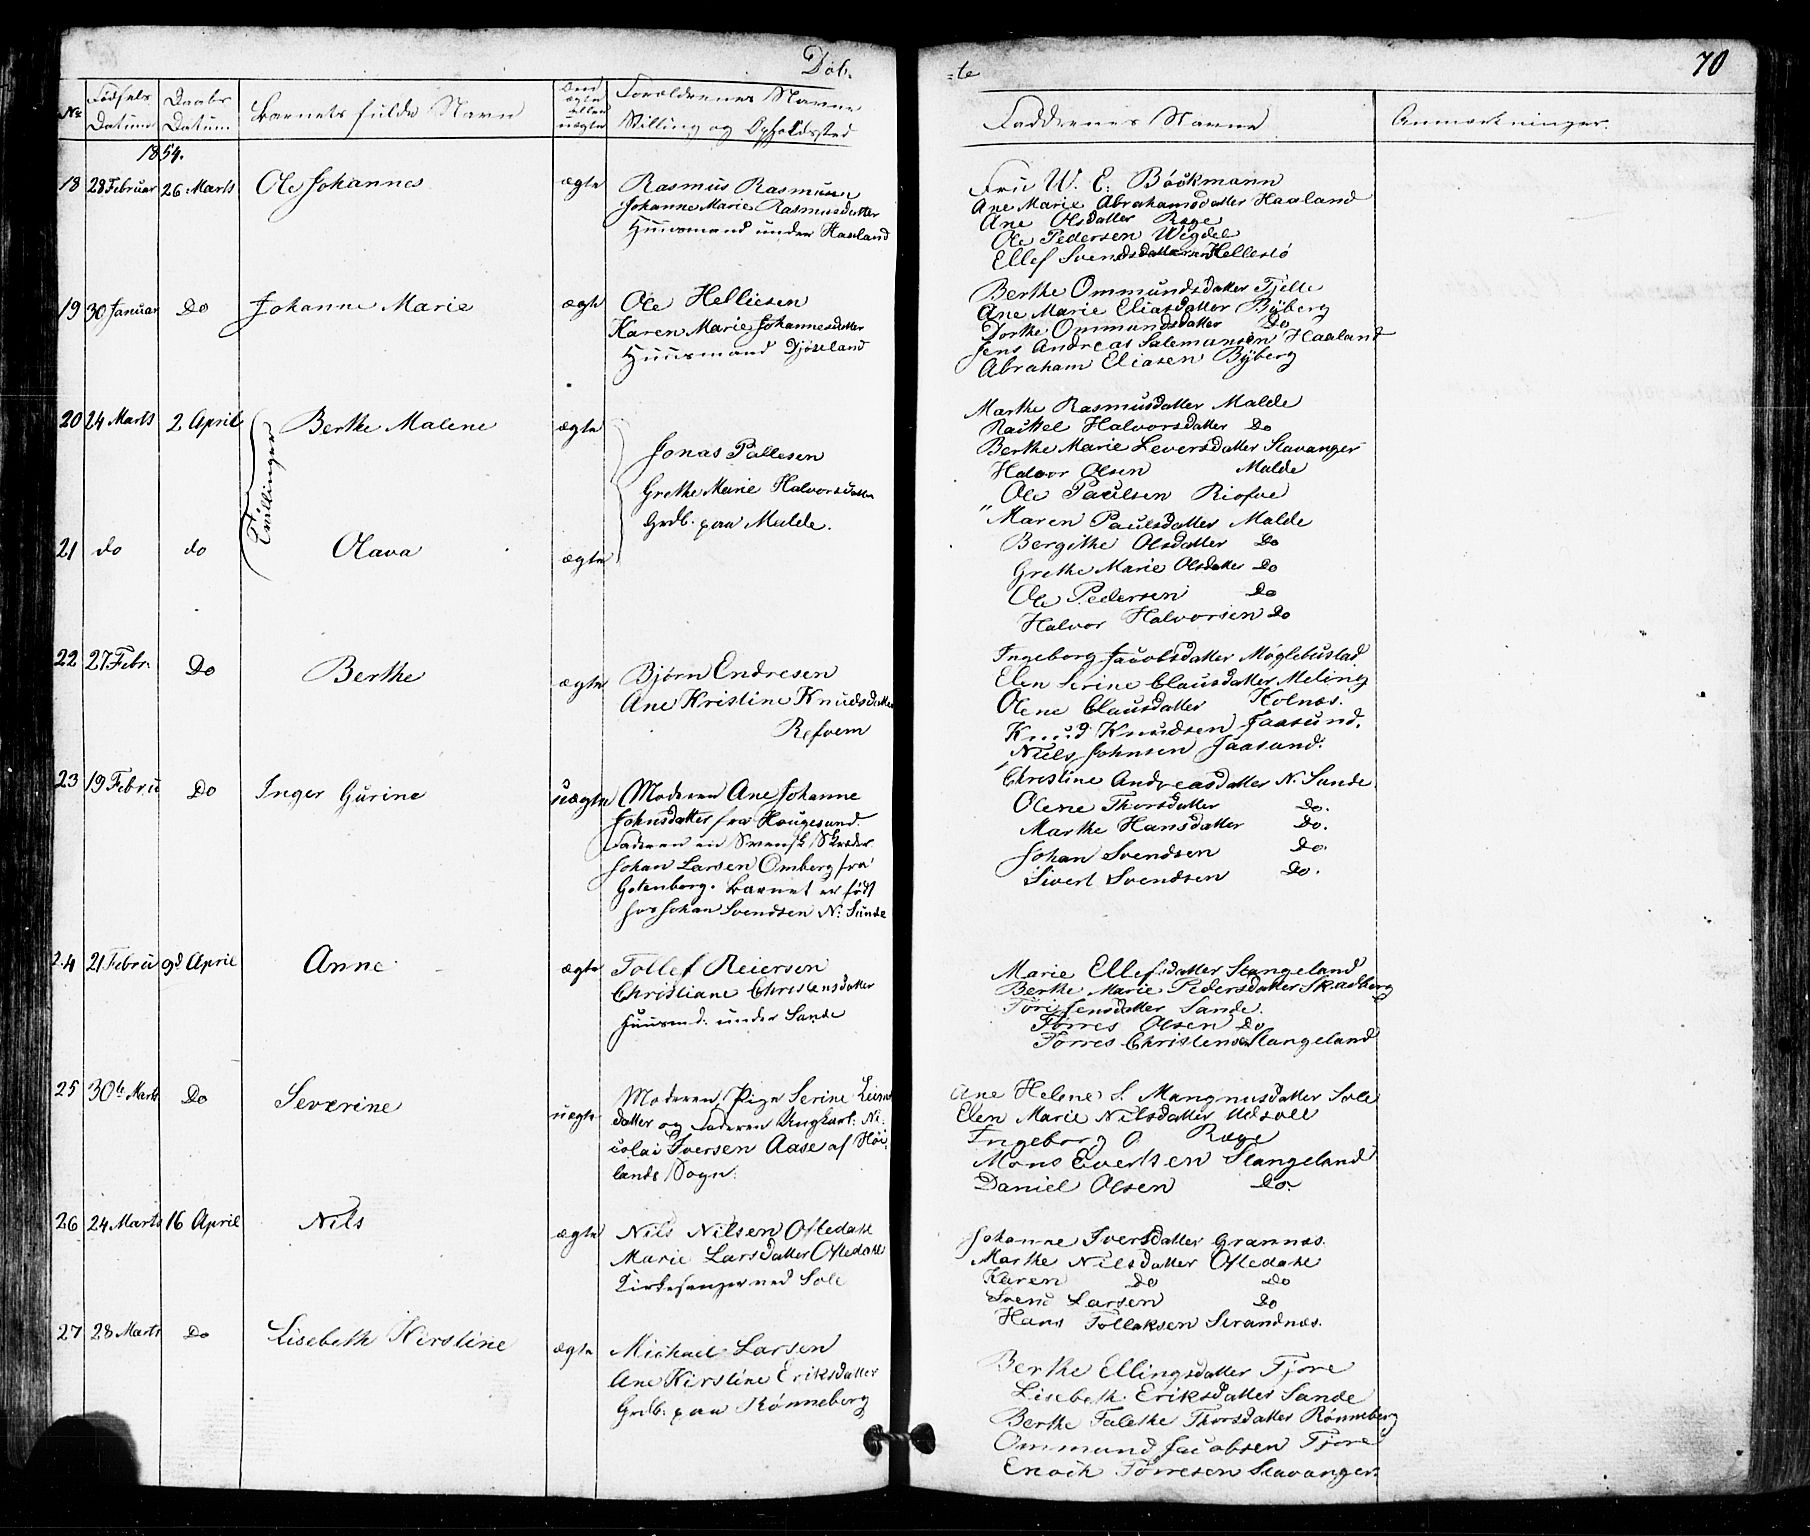 Døb-
No
Fødsels Datum
Daabs Datum
Barnets fulde Navn
End ægte eller uægte
Forældrenes Navne
Stilling og Opholdssted
1854.
18 28 Februar 26 Marts Ole Johannes ægte Rasmus Rasmusen
Johanne Marie Rasmusdatter
Huusmand under Haaland
19 30 Januar Do Johanne Marie ægte Ole Helliesen
Karen Marie Johannesdatter
Huusmand Djøseland
20 24 Marts 2 April Berthe Malene ægte
Tvillinger
Jonas Pallesen
Grethe Marie Halvorsdatter
Grdb. paa Malde.
21 do do Olava ægte
22 27 Febr. Do Berthe ægte Bjørn Endresen
Ane Kristine Knudsdatter
Refvem
23 19 Febru Do Inger Gurine uægte Moderen Ane Johanne
Johnsdatter fra Hougesund.
Faderen en Svensk Skræder
Johan Larsen Omberg fra
Gotenborg. Barnet er født
hos Johan Svendsen N. Sunde
24 21 Febru 9d April Anne ægte Tollef Reiersen
Christiane Christensdatter
Huusmd. under Sande
25 30te Marts Do Severine uægte Moderen, Pige Serine
datter og Faderen Ungkarl: Ni-
colai Iversen Aase af Høi-
lands Sogn.
26 24 Marts 16 April Nils ægte Nils Nilsen Oftedahl
Marie Larsdatter Oftedahl
Kirkesanger ved Sole
27 28 Marts Do Lisebeth Kirstine ægte Michael Larsen
Ane Kirstine Eriksdatter
Grdb. paa Rønneberg
=te
70
Faddernes Navne
Anmærkninger.
Fru W. E. Böckmann
Ane Marie Abrahamsdatter Haaland
Ane Olsdatter Ræge
Ole Pedersen Wigdel
Ellef Svendsen Hellestø
Berthe Ommundsdatter Tjelle
Ane Marie Eliasdatter Byberg
Dorthe Ommundsdatter Do
Jens Andreas Salemunsen Haaland
Abraham Eliasen Byberg
Marthe Rasmusdatter Malde
Rachel Halvorsdatter Do
Berthe Marie Leversdatter Stavanger
Halvor Olsen Malde
Ole Paulsen Riofve
" Maren Paulsdatter Malde
Bergithe Olsdatter Do
Grethe Marie Olsdatter Do
Ole Pedersen Do
Halvor Halvorsen Do
Ingeborg Jacobsdatter Møglebustad
Elen Serine Clausdatter Meling
Olene Clausdatter Kolnæs.
Knud Knudsen Jaasund.
Niels Johnsen Jaasund.
Christine Andreasdatter N. Sunde
Olene Thorsdatter Do.
Marthe Hansdatter Do.
Johan Svendsen Do.
Sivert Svendsen Do.
Marie Ellefsdatter Stangeland
Berthe Marie Pedersdatter Skadberg
Tori Jensdatter Sande.
Torres Olsen Do
Torres Christensen Stangeland
Ane Helene S. Mangnusdatter Sole
Elen Marie Nilsdatter Udsoll
Ingeborg O. Ræge
Mons Evertsen Stangeland
Daniel Olsen Do.
Johanne Iversdatter Grannæs.
Marthe Nilsdatter Oftedahl
Karen Do Do
Svend Larsen Do
Hans Tollaksen Strandnæs.
Berthe Ellingsdatter Tjore
Lisebeth Eriksdatter Sande
Berthe Talethe Thorsdatter Rønneberg
Ommund Jacobsen Tjore
Enoch Torresen Stavanger.